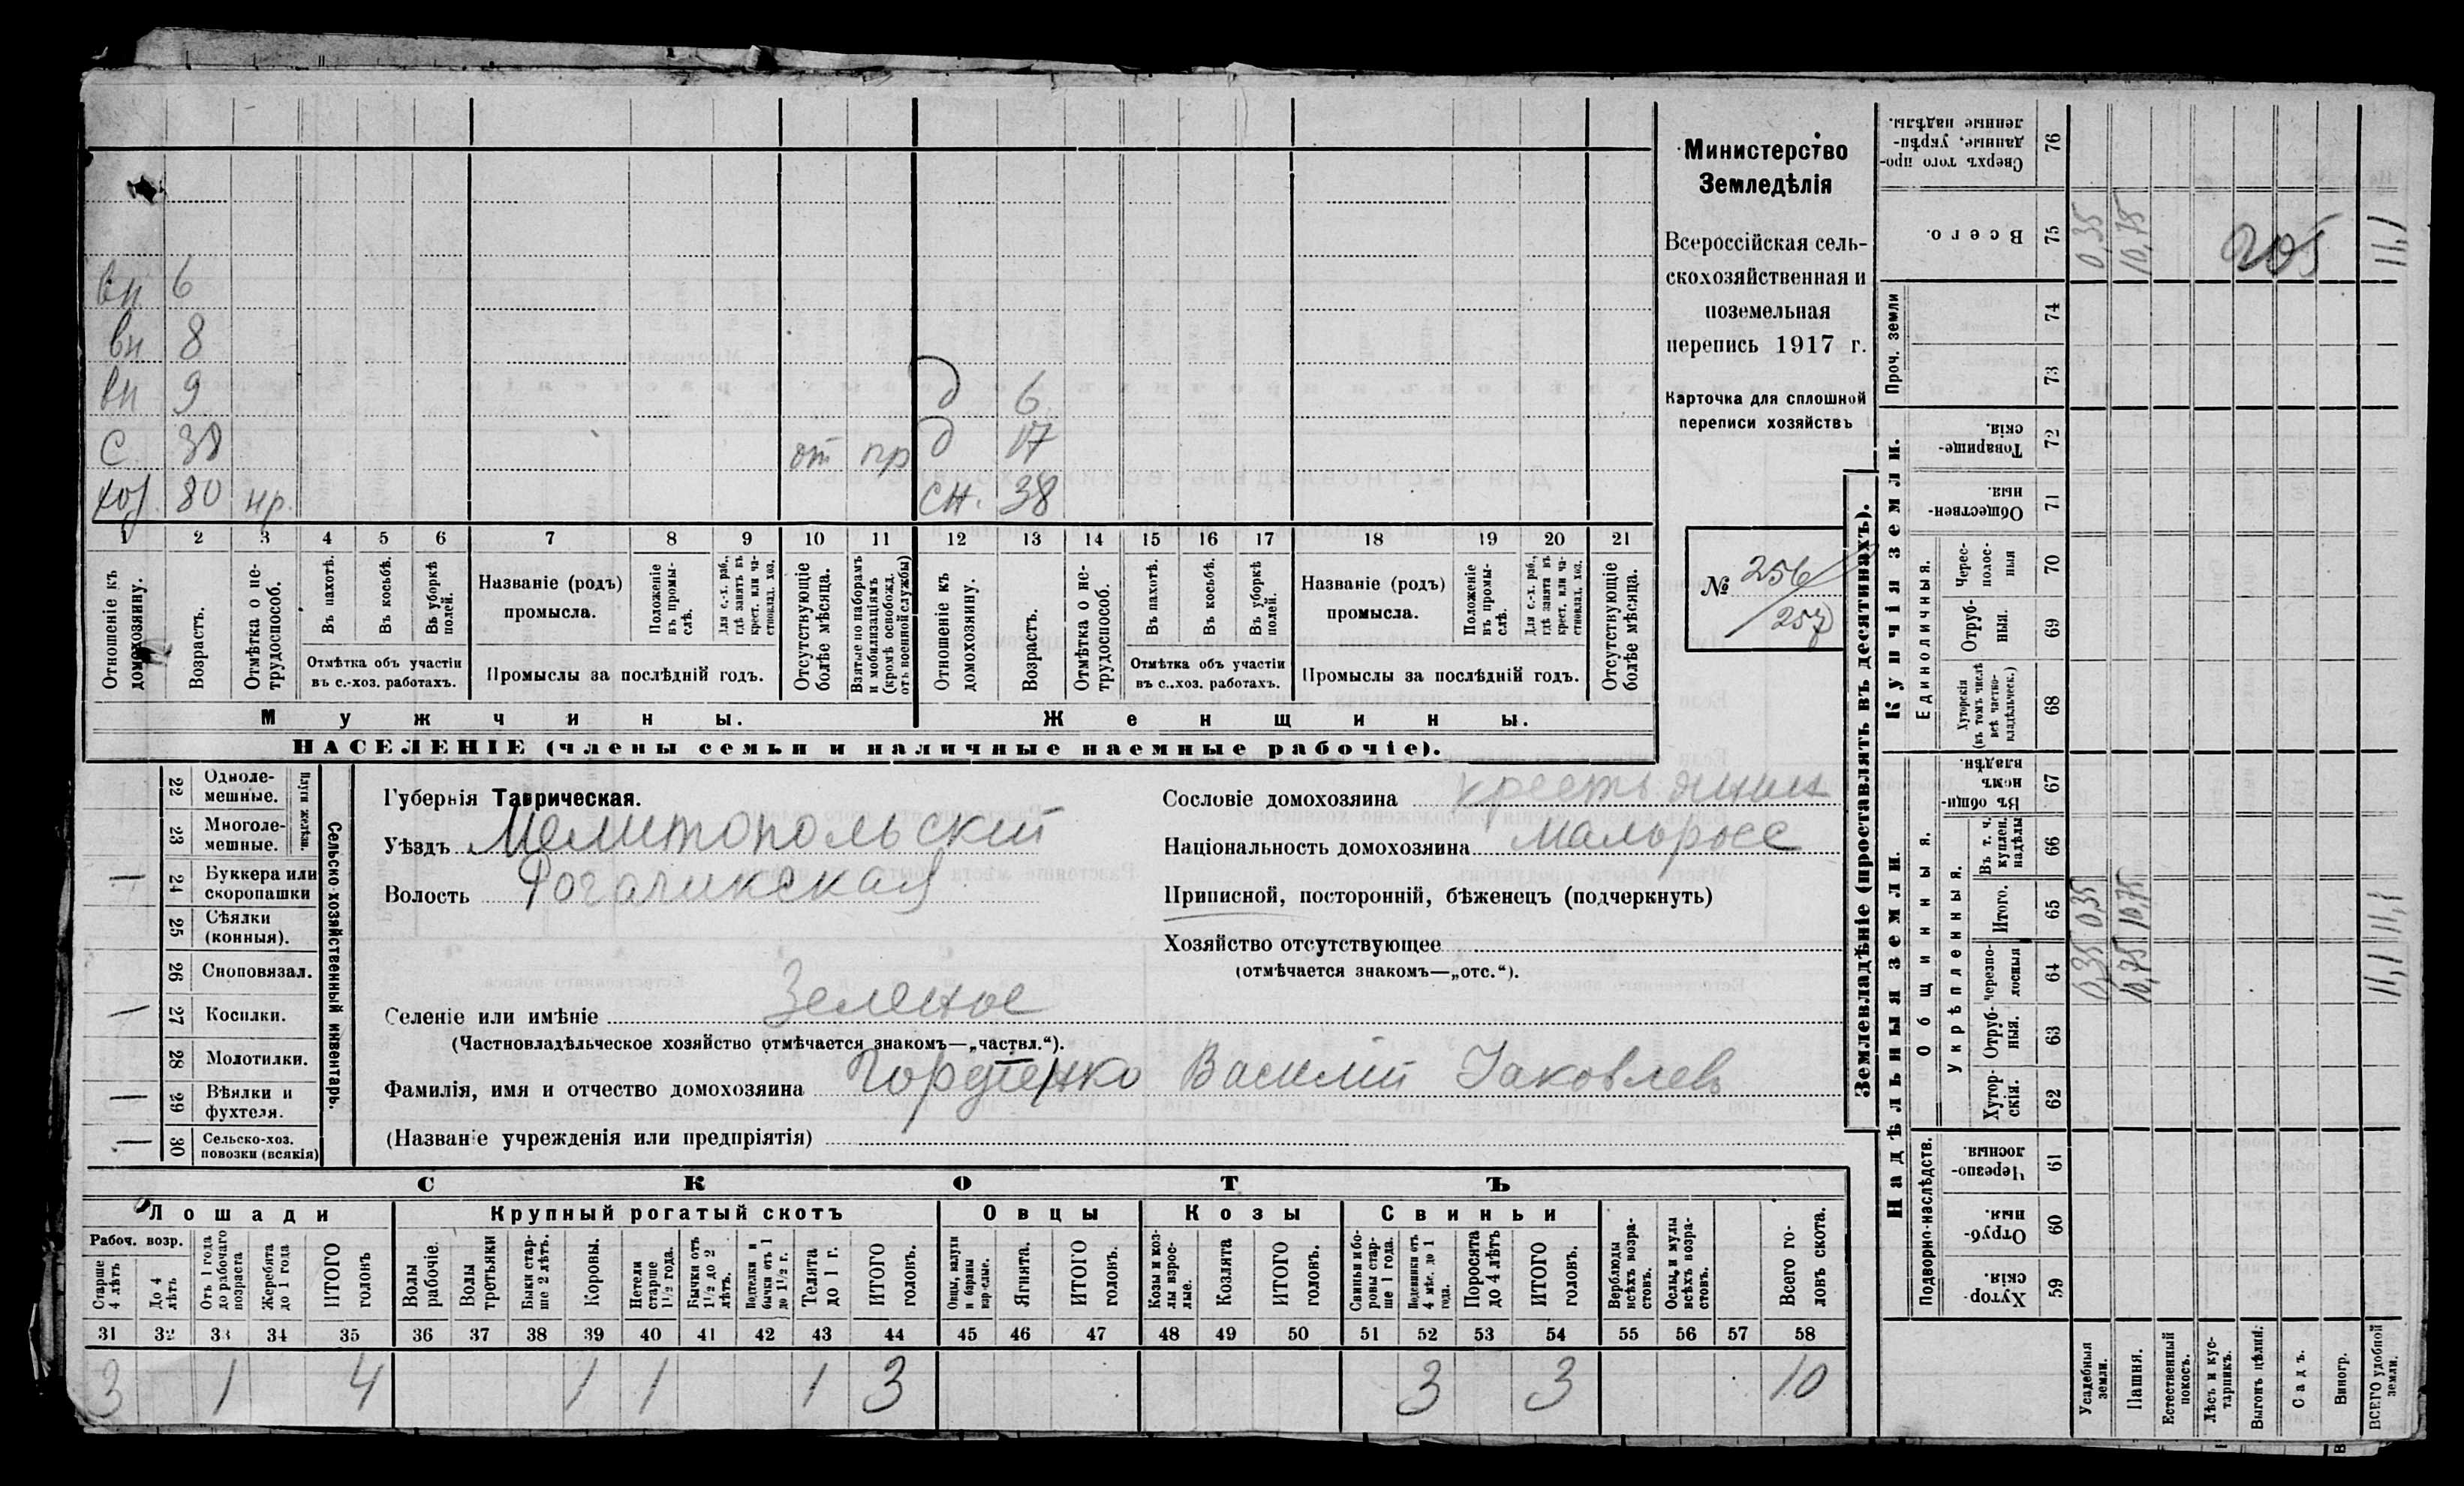 вн 6
вн 8
вн 9 д 6
с 38 от пр д 17
хоз. 80 нр. сн. 38
1 2 3 4 5 6 7 8 9 10 11 12 13 14 15 16 17 18 19 20 21
Отношеніе къ домохозяину.
Возрастъ.
Отмѣтка о нетрудоспособ.
Въ пахотѣ.
Въ косьбѣ.
Въ уборкѣ полей.
Отмѣтка объ участіи
въ с.-хоз. работахъ.
Названіе (родъ)
промысла.
Положеніе въ промыслѣ.
Для с.-х. раб., гдѣ занятъ въ крест. или частновлад. хоз.
Промыслы за послѣдній годъ.
Отсутствующіе болѣе мѣсяца.
Взятые по наборамъ и мобилизаціямъ (кромѣ освобожд. отъ военной службы)
Отношеніе къ домохозяину.
Возрастъ.
Отмѣтка о нетрудоспособ.
Въ пахотѣ.
Въ косьбѣ.
Въ уборкѣ полей.
Отмѣтка объ участіи
въ с.-хоз. работахъ.
Названіе (родъ)
промысла.
Положеніе въ промыслѣ.
Для с.-х. раб., гдѣ занятъ въ крест. или частновлад. хоз.
Промыслы за послѣдній годъ.
Отсутствующіе болѣе мѣсяца.
Мужчины. Женщины.
НАСЕЛЕНІЕ (члены семьи и наличные наемные рабочіе).
Министерство
Земледѣлія
Всероссійская сель-
скохозяйственная и
поземельная
перепись 1917 г.
Карточка для сплошной
переписи хозяйствъ
№ 256
/257
Сельско-хозяйственный инвентарь.
Плуги желѣзн.
22 Одноле-
мешные.
23 Многоле-
мешные.
— 24 Буккера или
скоропашки
25 Сѣялки
(конныя).
26 Сноповязал.
— 27 Косилки.
28 Молотилки.
— 29 Вѣялки и
фухтеля.
— 30 Сельско-хоз.
повозки (всякія)
Губернія Таврическая.
Уѣздъ Мелитопольскій
Волость Рогаликская
Сословіе домохозяина крестьянин
Національность домохозяина малоросс
Приписной, посторонній, бѣженецъ (подчеркнуть)
Хозяйство отсутствующее
(отмѣчается знакомъ—„отс.“).
Селеніе или имѣніе Зеленое
(Частновладѣльческое хозяйство отмѣчается знакомъ—„частвл.“).
Фамилія, имя и отчество домохозяина Василій Яковлевъ
(Названіе учрежденія или предпріятія)
СКОТЪ
Лошади Крупный рогатый скотъ Овцы Козы Свиньи
Рабоч. возр.
Старше 4 лѣтъ
До 4 лѣтъ
Отъ 1 года до рабочаго возраста
Жеребята до 1 года
ИТОГО головъ
Волы рабочіе.
Волы третьяки
Быки старше 2 лѣтъ.
Коровы.
Нетели старше 1 1/2 года.
Бычки отъ 1 1/2 до 2 лѣтъ.
Подтелки и бычки отъ 1 до 1 1/2 г.
Телята до 1 г.
ИТОГО головъ.
Овцы, валухи и бараны взрослые.
Ягнята.
ИТОГО головъ.
Козы и козлы взрослые.
Козлята
ИТОГО головъ.
Свиньи и боровы старше 1 года.
Подсвинки отъ 4 мѣс. до 1 года.
Поросята до 4 лѣтъ
ИТОГО головъ.
Верблюды всѣхъ возрастовъ.
Ослы, и мулы всѣхъ возрастовъ.
Всего головъ скота.
31 32 33 34 35 36 37 38 39 40 41 42 43 44 45 46 47 48 49 50 51 52 53 54 55 56 57 58
3 1 4 1 1 1 3 3 3 10
Землевладѣніе (проставлять въ десятинахъ).
Купчія земли.
Надѣльныя земли.
Сверхъ того проданные, укрѣпленные надѣлы. 76
Всего. 75 0,35 10,75 205 11,1
Проч. земли
74
73
Товарищескія. 72
Общественныя. 71
Единоличныя.
Черес-полос-ныя 70
Отруб-ныя. 69
Хуторскія (въ томъ числѣ всѣ частно-владѣльческ.) 68
Общинныя.
Въ общинномъ владѣн. 67
Укрѣпленныя.
Въ т. ч. куплен. надѣлы 66
Итого. 65 0,35 10,75 11,1
Черезполосныя 64 0,35 10,75 11,1
Отруб-ныя. 63
Хутор-скія. 62
Подворно-наслѣдств.
Черезполосныя. 61
Отруб-ныя. 60
Хутор-скія. 59
Усадебныя земли.
Пашня.
Естественный покосъ.
Лѣсъ и кустарникъ.
Выгонъ цѣлин.
Садъ.
Виногр.
ВСЕГО удобной земли.